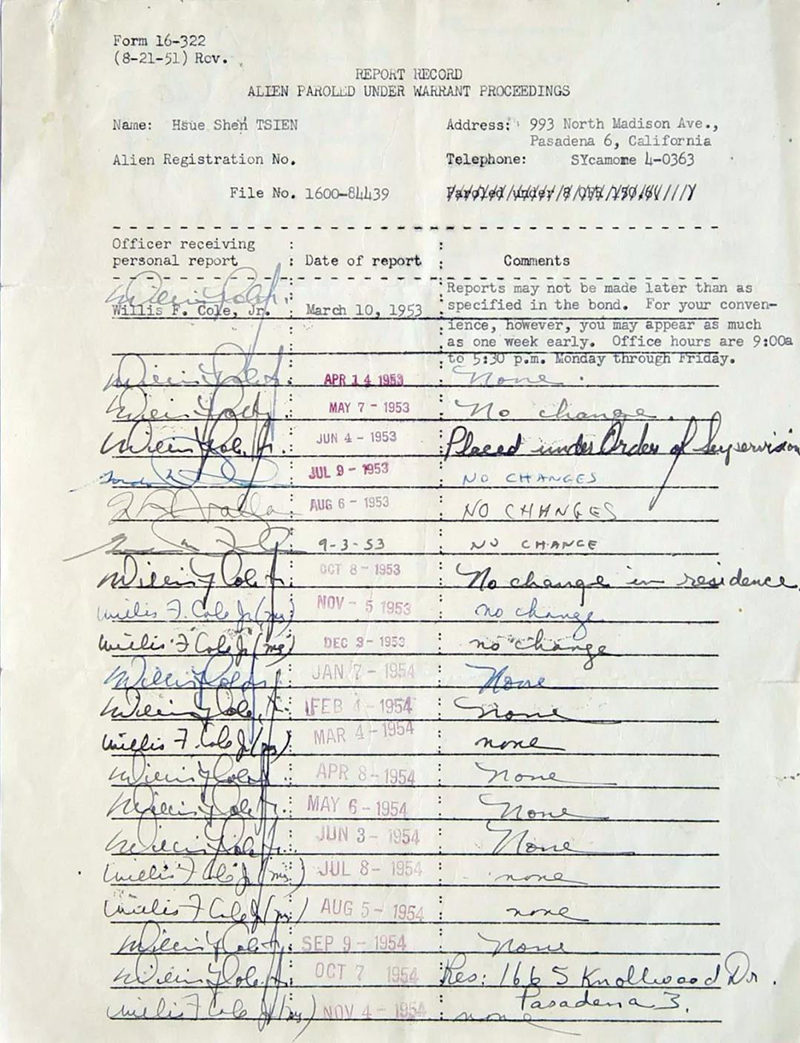 Form 16-322
(8-21-51) Rev.
REPORT RECORD
ALIEN PAROLED UNDER WARRANT PROCEEDINGS
Name: Hsue Shen TSIEN
Address: 993 North Madison Ave.,
Pasadena 6, California
Alien Registration No.
Telephone: SYcamore 4-0363
File No. 1600-84439
Officer receiving personal report : Date of report : Comments
Willis F. Cole, Jr. : March 10, 1953 : Reports may not be made later than as
specified in the bond. For your conven-
ience, however, you may appear as much
as one week early. Office hours are 9:00a
to 5:30 p.m. Monday through Friday.
Willis F Cole Jr. APR 14 1953 None.
Willis F Cole Jr. MAY 7 - 1953 No change.
Willis F Cole Jr. JUN 4 - 1953 Placed under Order of Supervision
JUL 9 - 1953 NO CHANGES
AUG 6 - 1953 NO CHANGES
9-3-53 NO CHANGE
Willis F Cole Jr. OCT 8 - 1953 No change in residence
Willis F Cole Jr (mg) NOV - 5 1953 no change
Willis F Cole Jr (mg) DEC 3 - 1953 no change
Willis F Cole Jr. JAN 7 - 1954 None
Willis F Cole Jr. FEB 4 - 1954 None
Willis F Cole Jr (mg) MAR 4 - 1954 none
Willis F Cole Jr. APR 8 - 1954 None
Willis F Cole Jr. MAY 6 - 1954 None
Willis F Cole Jr. JUN 3 - 1954 None
Willis F Cole Jr (mg.) JUL 8 - 1954 none
Willis F Cole Jr (mg) AUG 5 - 1954 none
Willis F Cole Jr. SEP 9 - 1954 None
Willis F Cole Jr. OCT 7 1954 Res: 1665 Knollwood Dr.
Pasadena 3.
Willis F Cole Jr (mg) NOV 4 - 1954 none